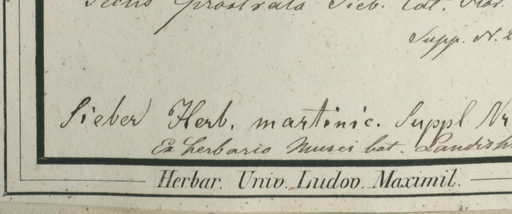 prostrata Sieb. Cat.
Supp. N. 2
Sieber Herb. martinic. Suppl Nr
Ex herbario Musei bot.
Herbar. Univ. Ludov. Maximil.